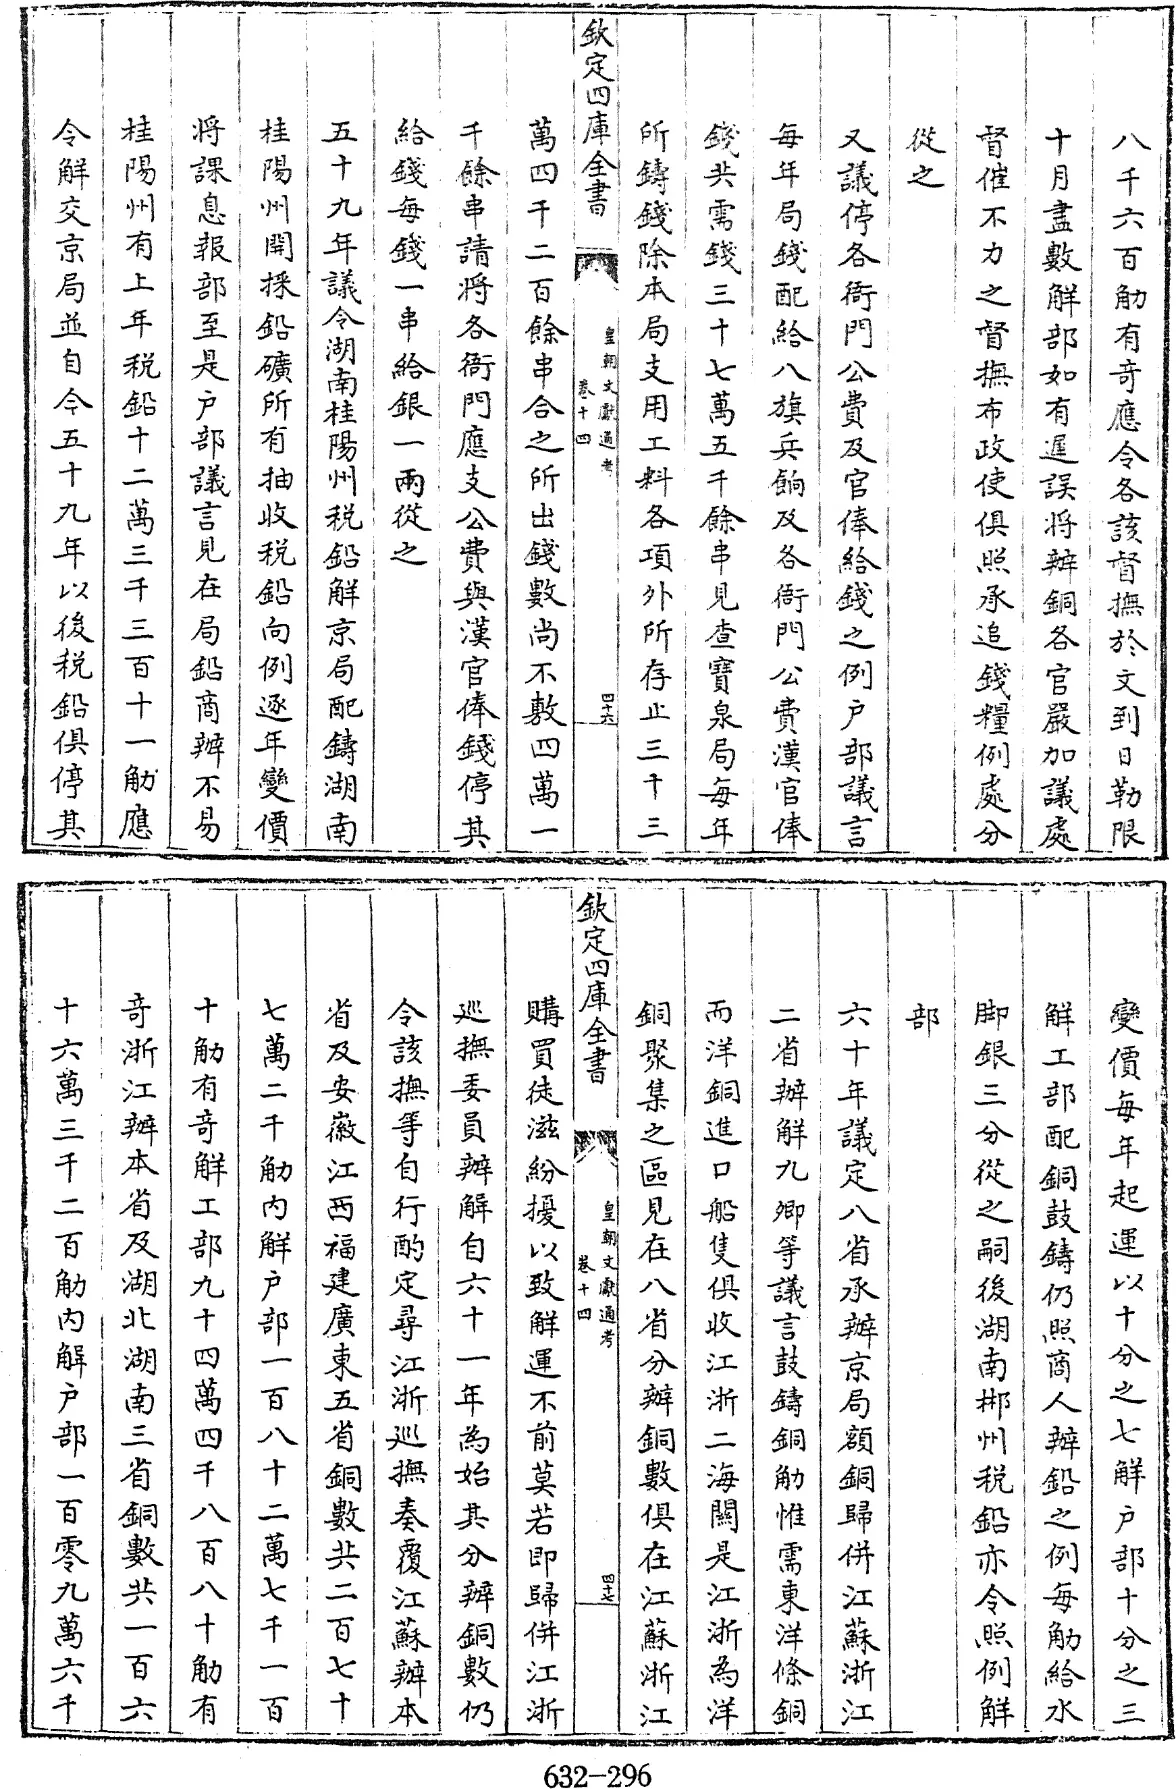 八千六百觔有奇應令各該督撫於文到日勒限
十月盡數解部如有遲誤將辦銅各官嚴加議處
督催不力之督撫布政使俱照承追錢糧例處分
從之
又議停各衙門公費及官俸給錢之例户部議言
每年局錢配給八旗兵餉及各衙門公費漢官俸
錢共需錢三十七萬五千餘串見查寶泉局每年
所鑄錢除本局支用工料各項外所存止三十三
欽定四庫全書
皇朝文獻通考
卷十四
四十六
萬四千二百餘串合之所出錢數尚不敷四萬一
千餘串請將各衙門應支公費與漢官俸錢停其
給錢每錢一串給銀一兩從之
五十九年議令湖南桂陽州税鉛解京局配鑄湖南
桂陽州開採鉛礦所有抽收税鉛向例逐年變價
將課息報部至是户部議言見在局鉛商辦不易
桂陽州有上年税鉛十二萬三千三百十一觔應
令解交京局並自今五十九年以後税鉛俱停其
變價每年起運以十分之七解户部十分之三
解工部配銅鼓鑄仍照商人辦鉛之例每觔給水
脚銀三分從之嗣後湖南郴州税鉛亦令照例解
部
六十年議定八省承辦京局額銅歸併江蘇浙江
二省辦解九卿等議言鼓鑄銅觔惟需東洋條銅
而洋銅進口船隻俱收江浙二海關是江浙為洋
銅聚集之區見在八省分辦銅數俱在江蘇浙江
欽定四庫全書
皇朝文獻通考
卷十四
四十七
購買徒滋紛擾以致解運不前莫若即歸併江浙
巡撫委員辦解自六十一年為始其分辦銅數仍
令該撫等自行酌定尋江浙巡撫奏覆江蘇辦本
省及安徽江西福建廣東五省銅數共二百七十
七萬二千觔内解户部一百八十二萬七千一百
十觔有奇解工部九十四萬四千八百八十觔有
奇浙江辦本省及湖北湖南三省銅數共一百六
十六萬三千二百觔内解户部一百零九萬六千
632-296